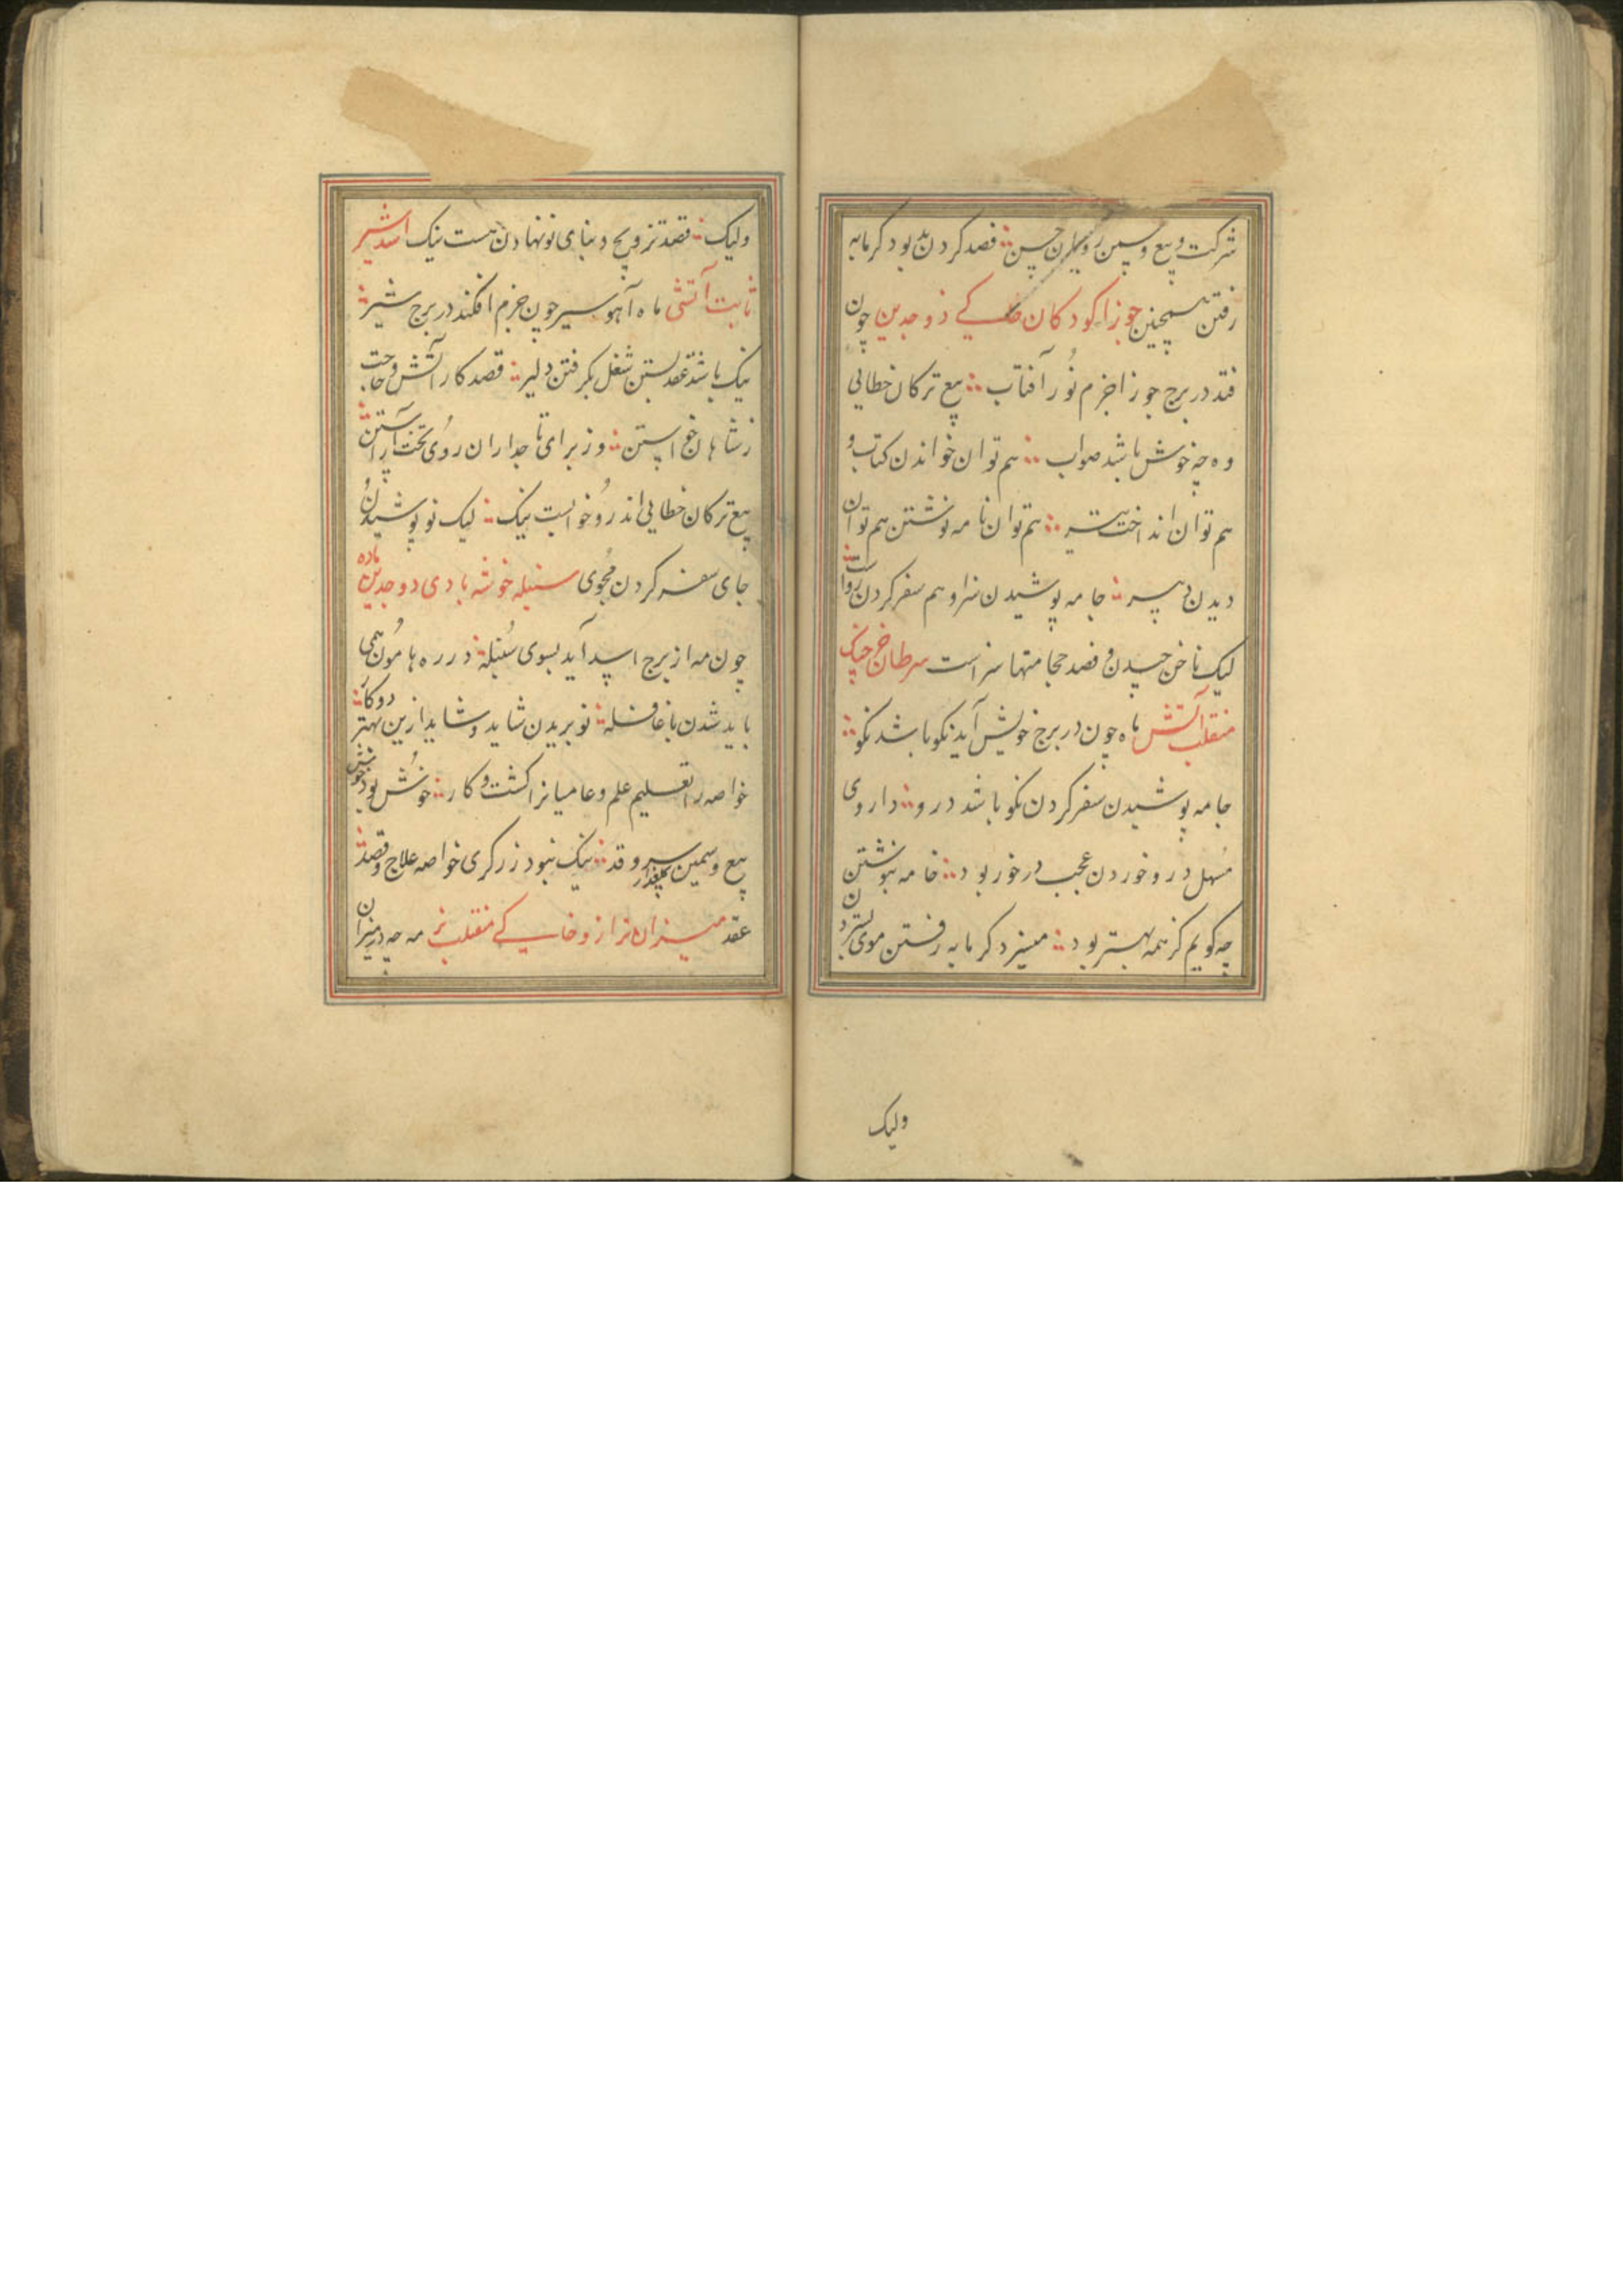 شرکت و بیع و سمین رویان حسن فصد کردن بد بود کرمابه
رفتن همچنین جوزا کودکان خاکے ذوجدین چون
فتد در برج جوزا جزم نور آفتاب بیع ترکان خطایی
وه چه خوش باشد صواب هم توان خواندن کتاب و
هم توان انداخت تیر هم توان نامه نوشتن هم توان
دیدن دبیر جامه پوشیدن سزا و هم سفر کردن رواست
لیک ناخن چیدن و فصد حجامتها سزاست سرطان خرچنک
منقلب آتش ماه چون در برج خویش آید نکو باشد نکو
جامه پوشیدن سفر کردن نکو باشد درو داروی
مسهل درو خوردن عجب درخور بود خامه نبوشتن
چه کویم کز همه بهتر بود میسزد کرمابه رفتن موی ستردن
ولیک
ولیک قصد تزویج و بنای نو نهادن هست نیک اسد شیر
ثابت آتشی ماه آهو سیر چون جزم افکند در برج شیر
نیک باشد عقد بستن شغل بکرفتن دلیر قصد کار آتش و حاجت
ز شاهان خواستن وز برای تاجداران روی تخت آراستن
بیع ترکان خطایی اندرو خوابست نیک لیک نو پوشیدن و
جای سفر کردن مجوی سنبله خوشه بادی دوجدین ماده
چون مه از برج اسد آید بسوی سنبله در ره هامون همی
باید شدن با قافله نو بریدن شاید و شاید ازین بهتر دو کار
خواصه را تعلیم علم و عامیانرا کشت و کار خوش بود
بیع و سمین سرو قد کلعذار نیک نبود زرکری خواصه علاج و فصد
عقد میزان ترازو خاکے منقلب نر مه چه در میزان